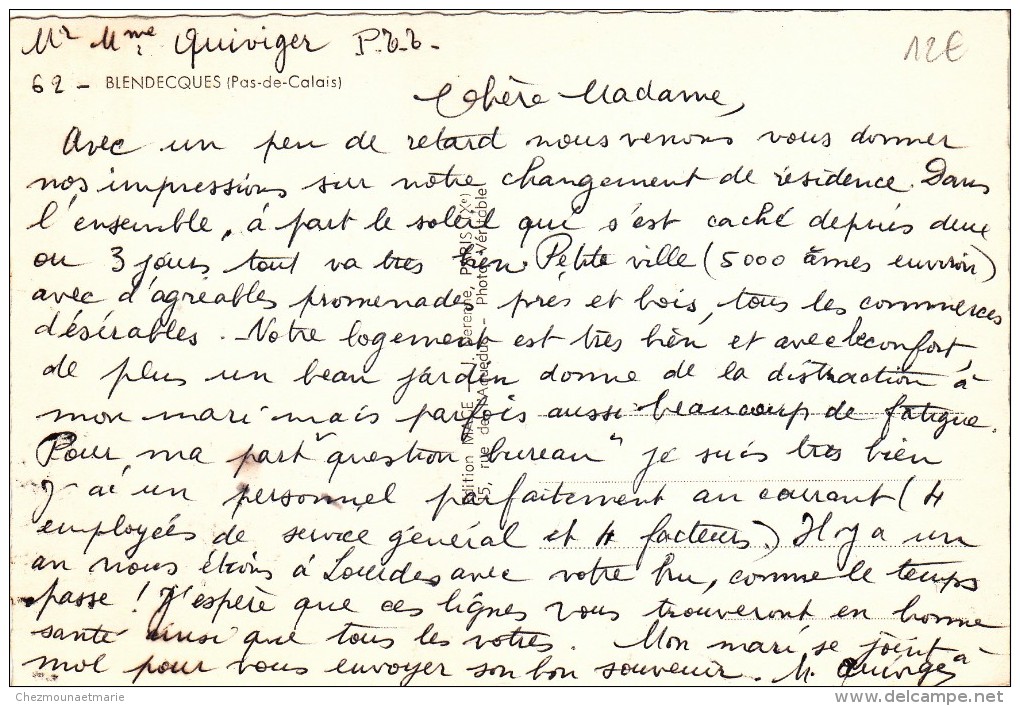 Mr Mme Quiviger P.T.T-
12€
62 - BLENDECQUES (Pas-de-Calais)
Chère Madame,
Avec un peu de retard nous venons vous donner
nos impressions sur notre changement de résidence. Dans
l'ensemble, à part le soleil qui s'est caché depuis deux
ou 3 jours tout va très bien. Petite ville (5000 âmes environ)
avec d'agréables promenades, près et bois, tous les commerces
désirables. Notre logement est très bien et avec le confort,
de plus un beau jardin donne de la distraction à
mon mari mais parfois aussi beaucoup de fatigue.
Pour ma part "question bureau" je suis très bien
J'ai un personnel parfaitement au courant (4
employées de service général et 4 facteurs.) Il y a un
an nous étions à Lourdes avec votre bru, comme le temps
passe ! J'espère que ces lignes vous trouveront en bonne
santé ainsi que tous les vôtres. Mon mari se joint à
moi pour vous envoyer son bon souvenir. M. Quiviger
Edition MAGE, J. Derenne, PARIS (Xe)
55, rue de l'Aqueduc - Photo Véritable
Chezmounaetmarie
www.delcampe.net